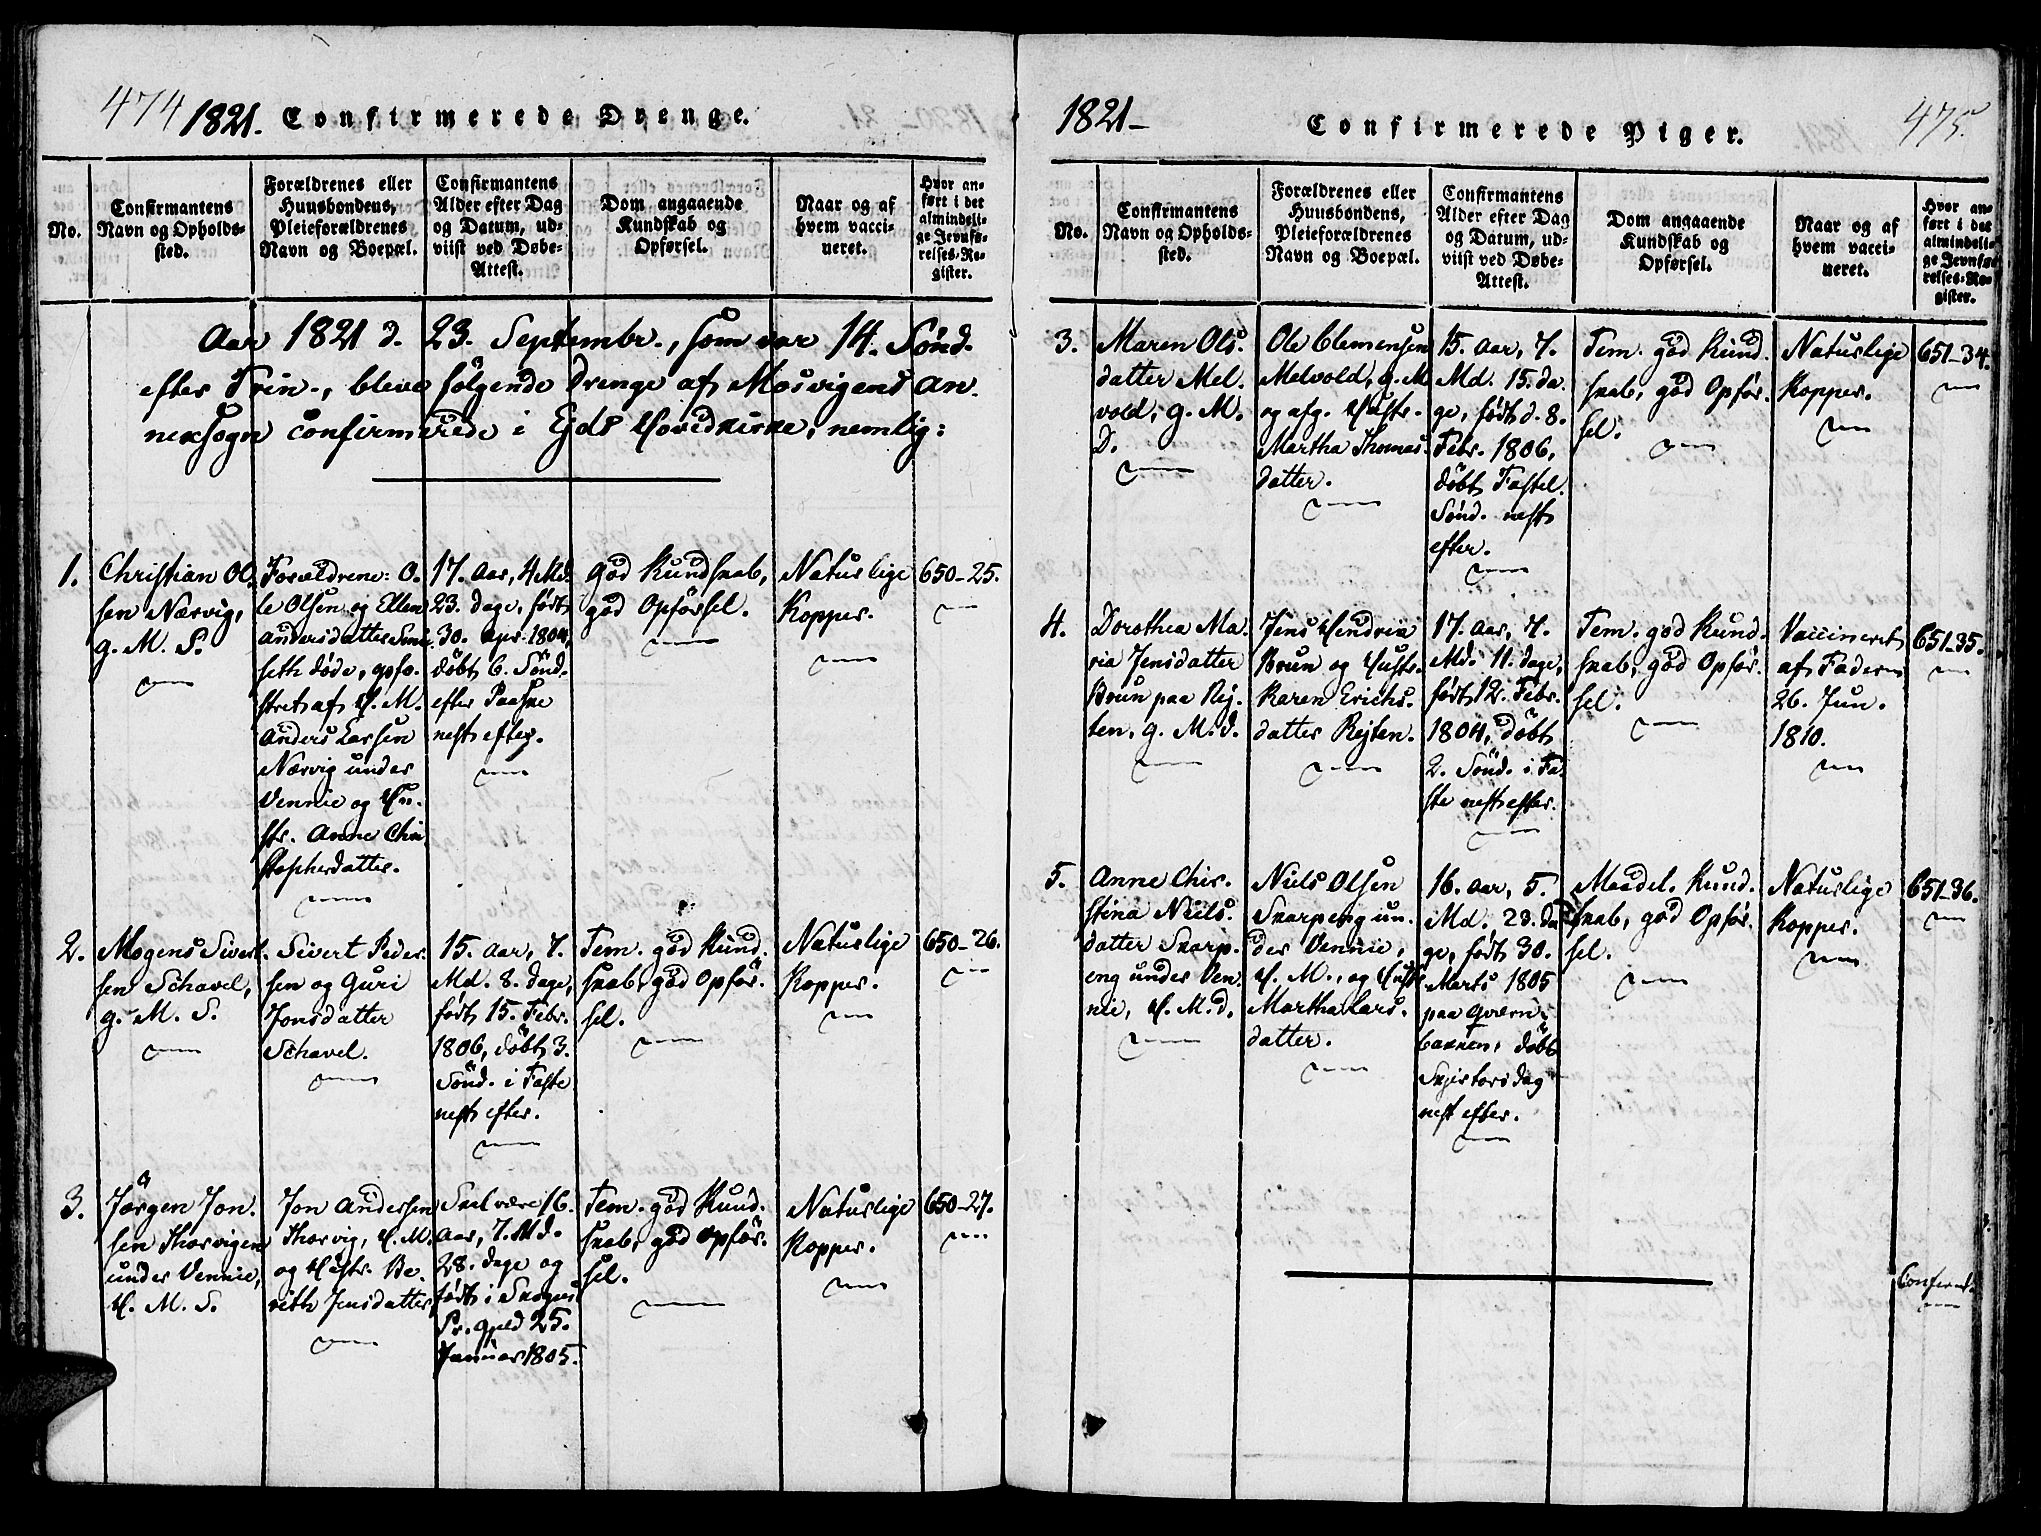 474 1821. Confirmerede Drenge.
No.
Confirmantens
Navn og Opholds-
sted.
Forældrenes eller
Huusbondens,
Pleieforældrenes
Navn og Boepæl.
Confirmantens
Alder efter Dag
og Datum, ud-
viist ved Døbe-
Attest.
Dom angaaende
Kundskab og
Opførsel.
Naar og af
hvem vacci-
neret.
Hvor an-
ført i det
almindeli-
ge Jevnfø-
relses-Re-
gister.
Aar 1821 d. 23. Septembr., som var 14. Sønd.
efter Trin., bleve følgende Drenge af Mosvigens An.
nexsogn confirmerede i Ejds Hovedkirke, nemlig:
1.
Christian Ol.
sen Nærvig,
g. M. S.
Forældrene: O.
le Olsen og Ellen
Andersdatter
seth døde, opfo.
stret af H. M.
Anders Larsen
Nærvig under
Vennie og Hu.
str. Anne Chri
stophersdatter.
17. Aar, 4 Md.
23. Dage, født
30. Apr. 1804,
døbt 6. Sønd.
efter Paaske
nest efter.
God Kundskab,
god Opførsel.
Naturlige
Kopper.
650-25.
2.
Mogens Sivert
sen Schavel,
g. M. S.
Sivert Peder.
sen og Guri
Jonsdatter
Schavel.
15. Aar, 7.
Md. 8. Dage,
født 15. Febr.
1806, døbt 3.
Sønd. i Faste
nest efter.
Tem. god Kund.
skab, god Opfør.
sel.
Naturlige
Kopper.
650-26.
3.
Jørgen Jon.
sen Thorvigen
under Vennie,
H. M. S.
Jon Andersen
Thorvig, H. M.
og Hustr. Be.
rith Jensdatter
Skal være 16.
Aar, 7. Md.
28. Dage og
født i Skogns
Pr. gjeld 25.
Januar 1805.
Tem. god Kund.
skab, god Opfør.
sel.
Naturlige
Kopper.
650-27.
1821- Confirmerede Piger. 475.
No.
Confirmantens
Navn og Opholds-
sted.
Forældrenes eller
Huusbondens,
Pleieforældrenes
Navn og Boepæl.
Confirmantens
Alder efter Dag
og Datum, ud-
viist ved Døbe-
Attest.
Dom angaaende
Kundskab og
Opførsel.
Naar og af
hvem vacci-
neret.
Hvor an-
ført i det
almindeli-
ge Jevnfø-
relses-Re-
gister.
3.
Maren Ols.
datter Mel.
vold, g. M.
D.
Ole Clemensen
Melvold, g. M
og afg. Hustr.
Martha Thomas.
datter.
15. Aar, 7.
Md. 15. Da.
ge, født d. 8.
Febr. 1806,
døbt Fastel.
Sønd. nest
efter.
Tem. god Kund.
skab, god Opfør.
sel.
Naturlige
Kopper.
651-34.
4.
Dorothea Ma.
ria Jensdatter
Brun paa Rej.
ten, g. M. D.
Jens Hendrik
Brun og Hustr.
Karen Erichs.
datter Rejten.
17. Aar, 7.
Md. 11. Dage,
født 12. Febr.
1804, døbt
2. Sønd. i Fa.
ste nest efter.
Tem. god Kund.
skab, god Opfør.
sel.
Vaccineret
af Faderen
26. Jun.
1810.
651-35.
5.
Anne Chir.
stina Niels.
datter Skarp.
eng under Ven.
nie, H. M. D.
Niels Olsen
Skarpeng un.
der Vennie,
H. M., og Hustr
Martha Lars.
datter.
16. Aar, 5.
Md. 23. Da
ge, født 30.
Marts 1805
paa Qværn.
bakken, døbt
Skjertorsdag
nest efter.
Maadel. Kund.
skab, god Opfør.
sel.
Naturlige
Kopper.
651-36.